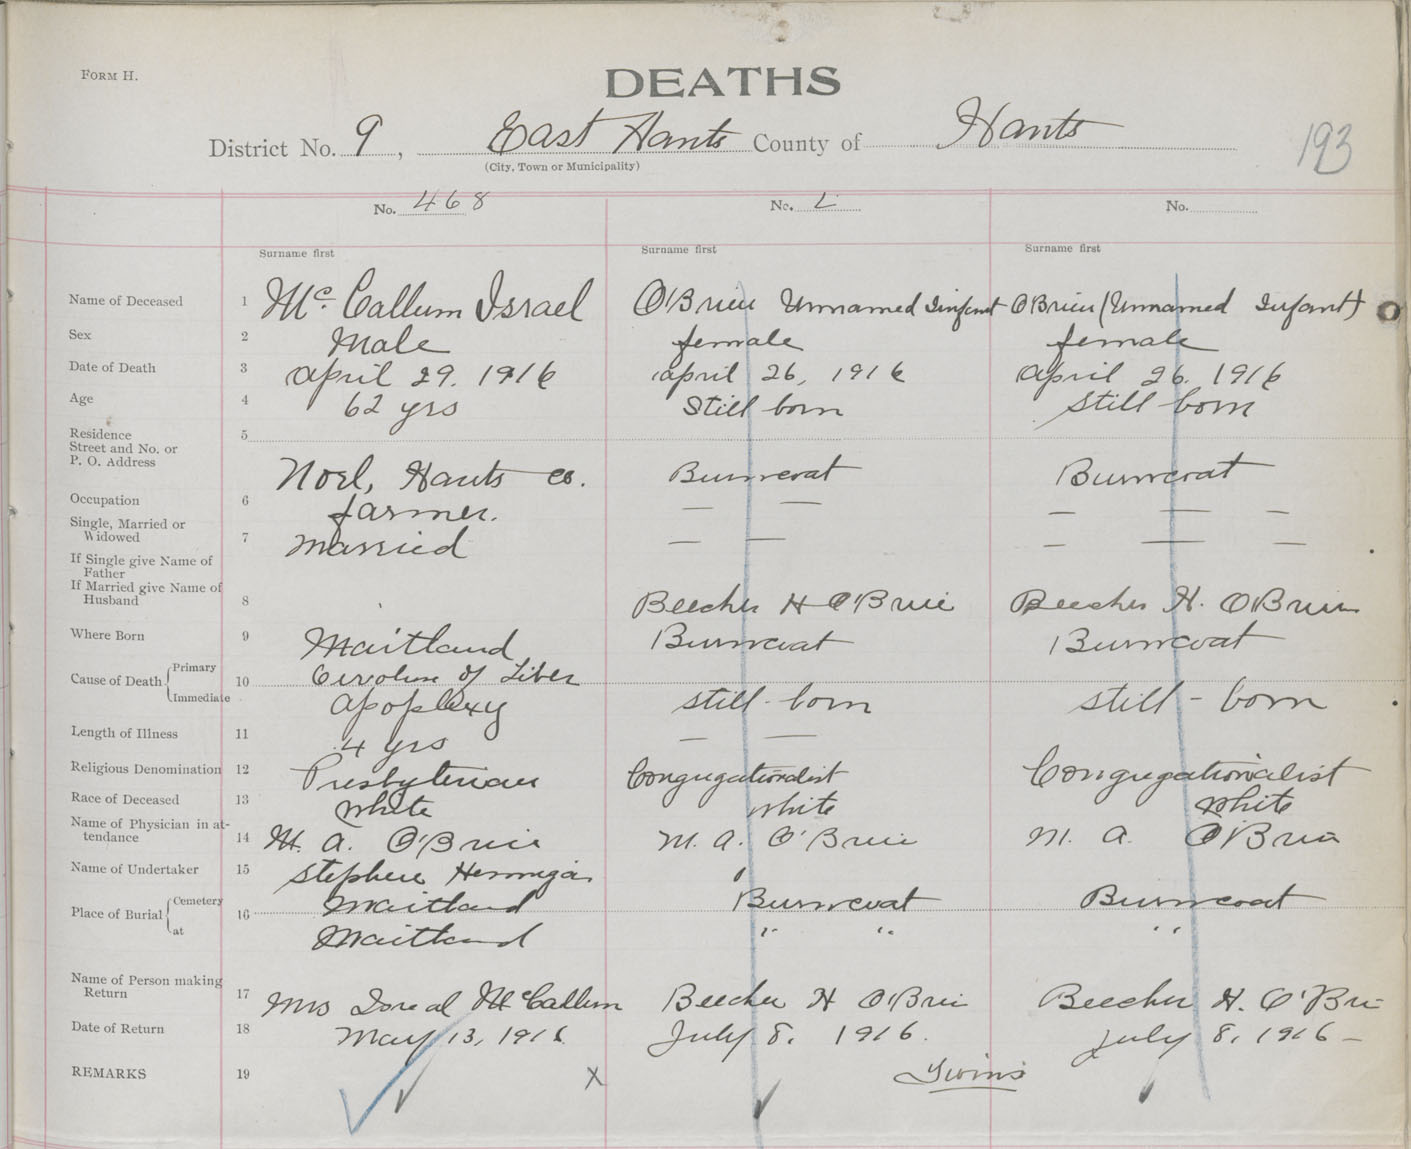 FORM H.
DEATHS
District No. 9, East Hants County of Hants
(City, Town or Municipality)
193
No. 468 No. L No.
Surname first Surname first Surname first
Name of Deceased 1 Mc. Callum Israel O'Brien Unnamed Infant O'Brien (Unnamed Infant)
Sex 2 Male female female
Date of Death 3 April 29. 1916 April 26, 1916 April 26. 1916
Age 4 62 yrs Still born still-born
Residence 5
Street and No. or
P. O. Address Noel, Hants co. Burncoat Burncoat
Occupation 6 farmer. — — — — —
Single, Married or
Widowed 7 Married — — — — —
If Single give Name of
Father
If Married give Name of
Husband 8 Beecher H O'Brien Beecher H. O'Brien
Where Born 9 Maitland Burncoat Burncoat
Cause of Death Primary 10 Cirrhosis of Liver
Immediate apoplexy still-born still-born
Length of Illness 11 4 yrs — —
Religious Denomination 12 Presbyterian Congregationalist Congregationalist
Race of Deceased 13 White white White
Name of Physician in at-
tendance 14 M. A. O'Brien M. A. O'Brien M. A. O'Brien
Name of Undertaker 15 Stephen Hennigar
Place of Burial Cemetery 16 Maitland Burncoat Burncoat
at Maitland " " " "
Name of Person making
Return 17 Mrs Isreal McCallum Beecher H O'Brien Beecher H. O'Brien
Date of Return 18 May 13, 1916 July 8. 1916. July 8, 1916 —
REMARKS 19 X Twins